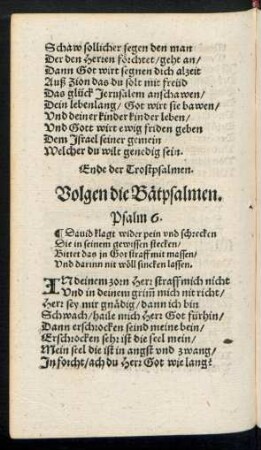 Schaw sollicher segen den man
Der den Herren förchtet/geht an/
Dann Got wirt segnen dich alzeit
Auß Zion das du solt mit freüd
Das glück Jerusalem anschawen/
Dein lebenlang/ Got wirt sie bawen/
Und deiner kinder kinder leben/
Und Gott wirt ewig friden geben
Dem Israel seiner gemein
Welcher du wilt genedig sein.
Ende der Trostpsalmen.
Volgen die Bätpsalmen.
Psalm 6.
¶ Dauid klagt wider pein vnd schrecken
Die in seinem gewissen stecken/
Bittet das jn Got straff mit massen/
Vnd darinn nit wöll sincken lassen.
IN deinem zorn Herr straff mich nicht
Und in deinem griṁ mich nit richt/
Herr sey mir gnädig/ dann ich bin
Schwach/ haile mich Herr Got fürhin/
Dann erschrocken seind meine bein/
Erschrocken sehr ist die seel mein/
Mein seel die ist in angst vnd zwang/
In forcht/ach du Herr Got wie lang?